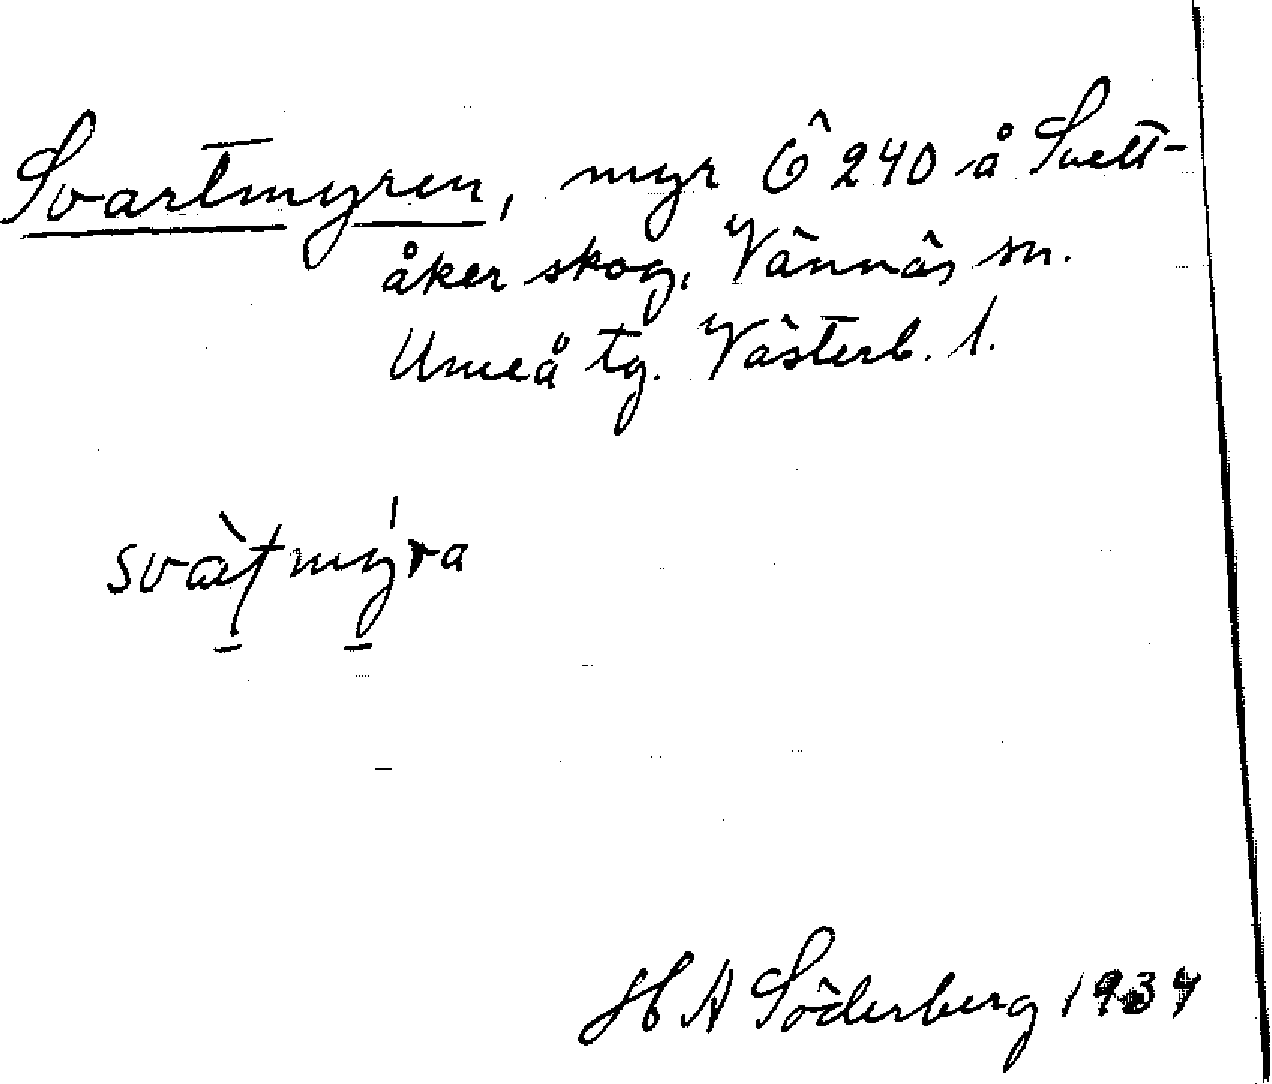 Svartmyren, myr Ö 240 å Svett-
åker skog, Vännäs sn.
Umeå tg. Västerb. l.
svàtmýra
H A Söderberg 1934